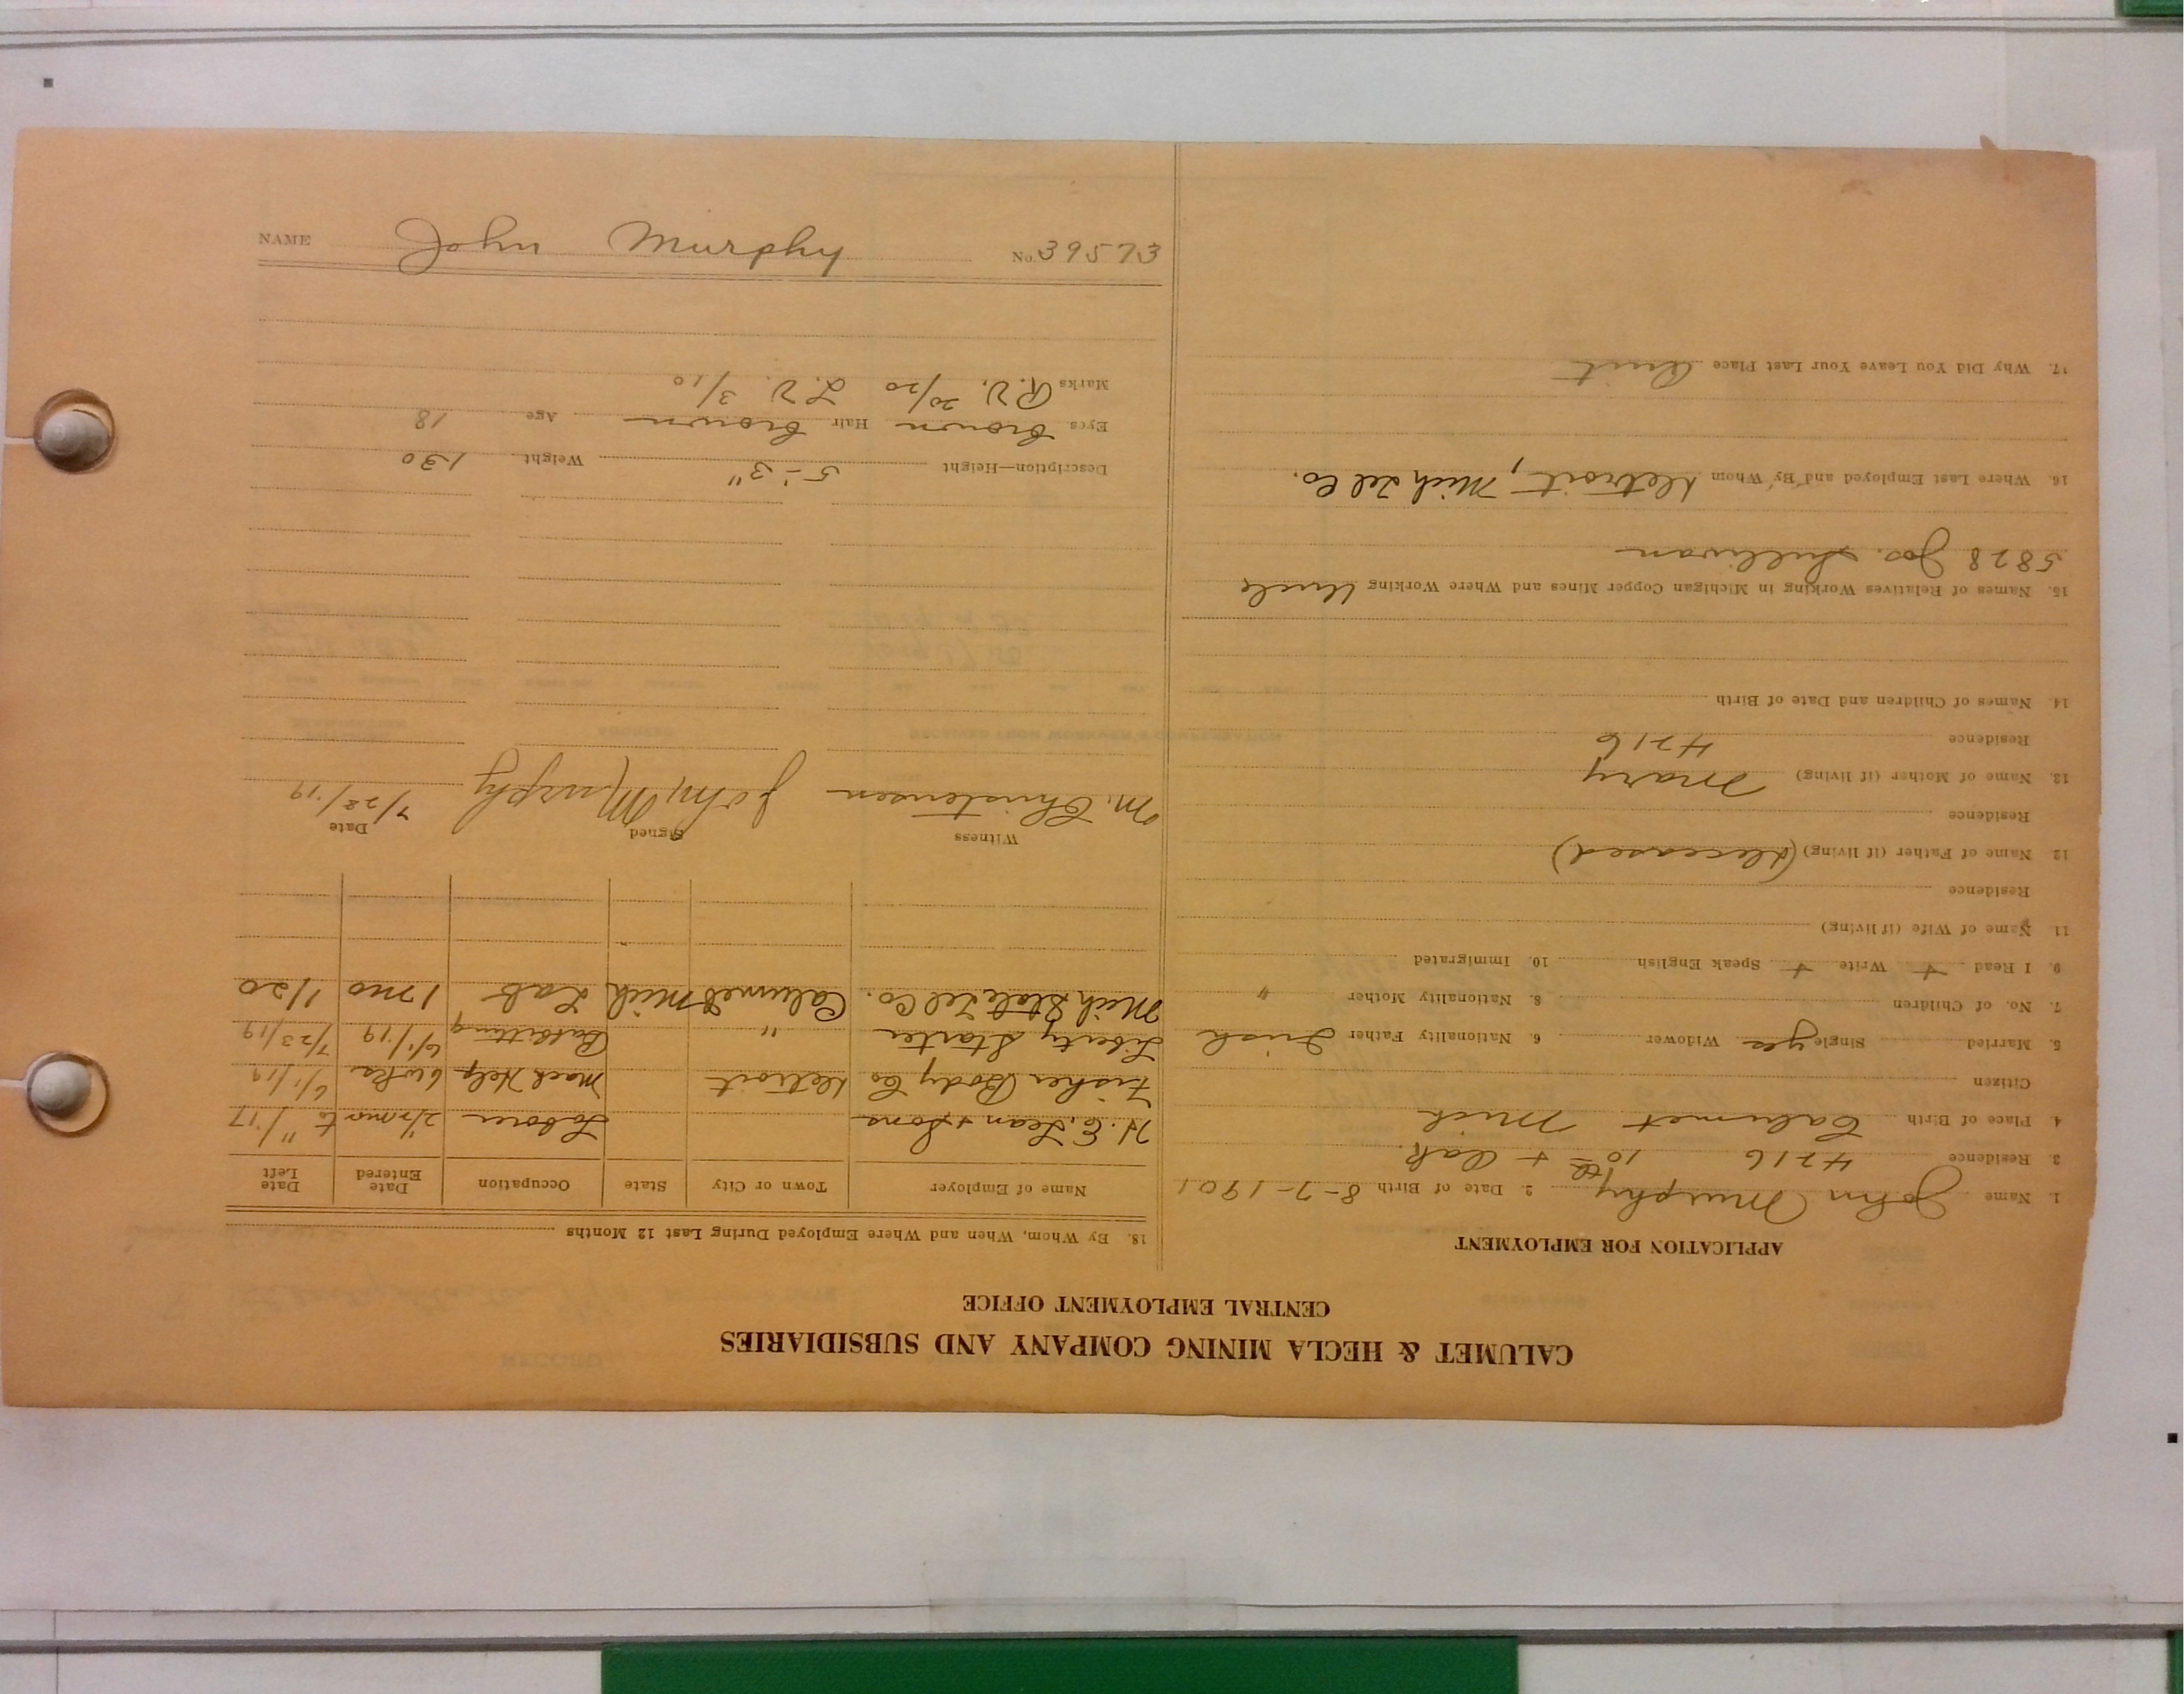 CALUMET & HECLA MINING COMPANY AND SUBSIDIARIES
CENTRAL EMPLOYMENT OFFICE
APPLICATION FOR EMPLOYMENT
1. Name John Murphy 2. Date of Birth 8-7-1901
3. Residence 4216 10th + Oak
4. Place of Birth Calumet Mich
Citizen
5. Married Single yes Widower 6. Nationality Father Irish
7. No. of Children 8. Nationality Mother "
9. I Read + Write + Speak English 10. Immigrated
11. Name of Wife (if living)
Residence
12. Name of Father (if living) (deceased)
Residence
13. Name of Mother (if living) Mary
Residence 4216
14. Names of Children and Date of Birth
15. Names of Relatives Working in Michigan Copper Mines and Where Working Uncle
5828 Jos. Sullivan
16. Where Last Employed and By Whom Detroit, Mich Tel Co.
17. Why Did You Leave Your Last Place Quit
18. By Whom, When and Where Employed During Last 12 Months
Name of Employer Town or City State Occupation Date Entered Date Left
Laborer 2 1/2 mos to 11/'17
Fisher Body Co Detroit Mach Help 6 wks 6/1/19
Liberty Starter " Babbitting 6/1/19 7/23/19
Mich State Tel Co. Calumet Mich Lab 1 mo 1/20
Witness Signed Date
M. Christensen John Murphy 7/28/19
Description—Height 5'-3" Weight 130
Eyes brown Hair brown Age 18
Marks R.V. 20/20 L.V. 3/10
NAME John Murphy No. 39573